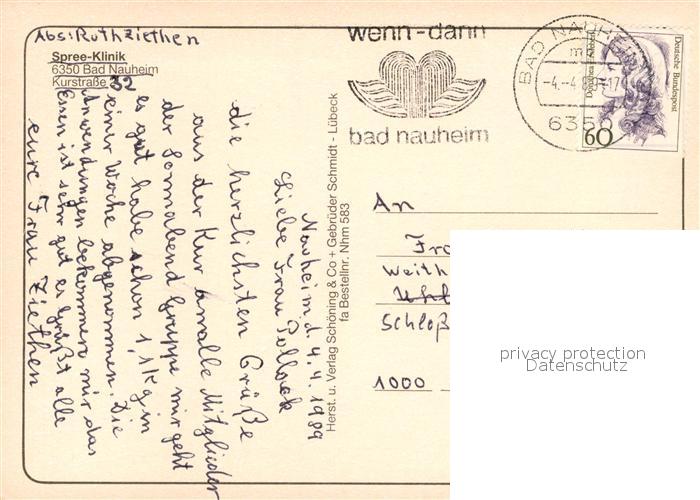 Abs: Ruth Ziethen
Spree-Klinik
6350 Bad Nauheim
Kurstraße 32
wenn-dann
bad nauheim
BAD NAUHEIM
-4.-4.8
6350
60
Deutsche Bundespost
Nauheim d. 4.4.1989
Liebe Frau Pollack
die herzlichsten Grüße
aus der Kur an alle Mitglieder
der Sonnabend Gruppe mir geht
es gut habe schon 1,1 kg in
einer Woche abgenommen. Die
Anwendungen bekommen mir das
Essen ist sehr gut es Grüßt alle
eure Frau Ziethen
Herst. u. Verlag Schöning & Co + Gebrüder Schmidt - Lübeck
fa Bestellnr. Nhm 583
An
Fra
Weith
Schloß
1000
privacy protection
Datenschutz